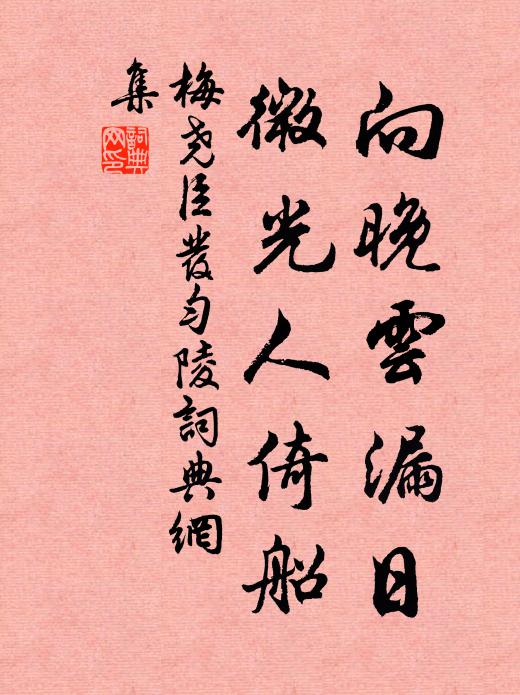 向晚雲漏日
微光人倚船
梅堯臣發勻陵詞典網
集
詞典網印